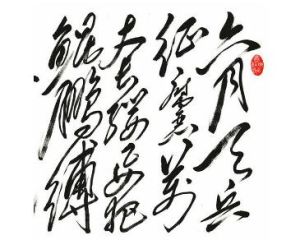 六月天兵
征腐恶万
丈长缨要把
鲲鹏缚